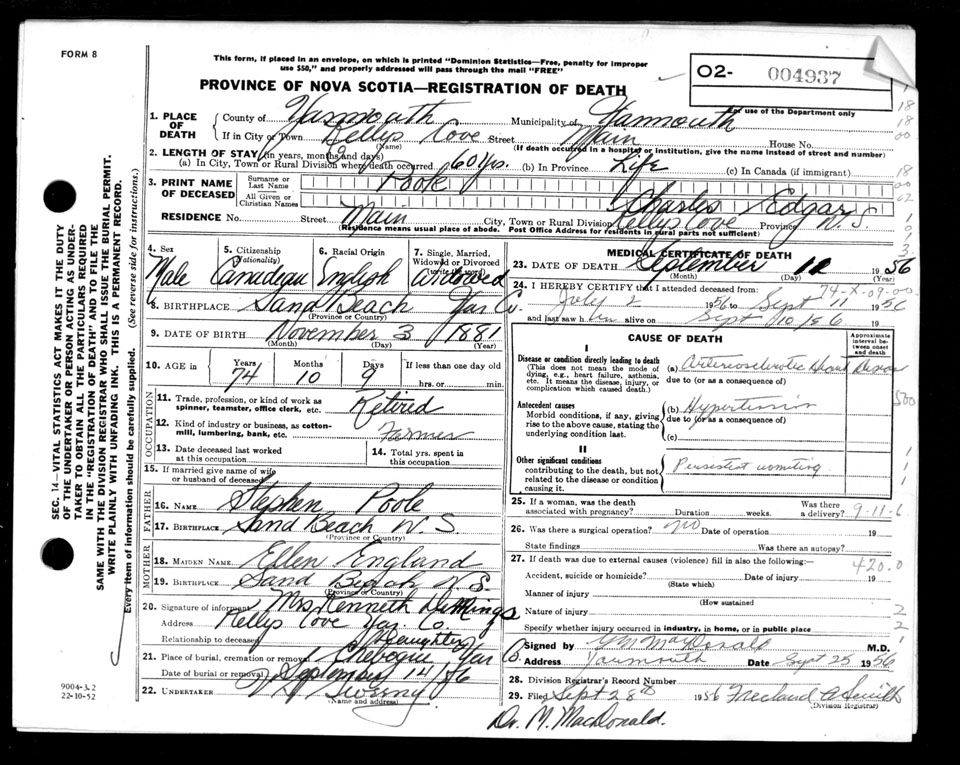 FORM 8
This form, if placed in an envelope, on which is printed "Dominion Statistics—Free, penalty for improper
use $50," and properly addressed will pass through the mail "FREE"
PROVINCE OF NOVA SCOTIA—REGISTRATION OF DEATH
02- 004937
For use of the Department only
1. PLACE OF DEATH
County of Yarmouth Municipality of Yarmouth
If in City or Town Kellys Cove Street Main House No.
(Name) (If death occurred in a hospital or institution, give the name instead of street and number)
2. LENGTH OF STAY (in years, months and days)
(a) In City, Town or Rural Division where death occurred 60 yrs. (b) In Province Life (c) In Canada (if immigrant)
3. PRINT NAME OF DECEASED
Surname or Last Name Poole
All Given or Christian Names Charles Edgar
RESIDENCE No. Street Main City, Town or Rural Division Kellys Cove Province N.S.
(Residence means usual place of abode. Post Office Address for residents in rural parts not sufficient)
4. Sex Male
5. Citizenship (Nationality) Canadian
6. Racial Origin English
7. Single, Married, Widowed or Divorced (write the word) Widowed
8. BIRTHPLACE Sand Beach Yar Co.
(Province or Country)
9. DATE OF BIRTH November 3 1881
(Month) (Day) (Year)
10. AGE in Years 74 Months 10 Days 9 If less than one day old
hrs. or min.
OCCUPATION
11. Trade, profession, or kind of work as
spinner, teamster, office clerk, etc. Retired
12. Kind of industry or business, as cotton-
mill, lumbering, bank, etc. Farmer
13. Date deceased last worked
at this occupation
14. Total yrs. spent in
this occupation
15. If married give name of wife
or husband of deceased
FATHER
16. NAME Stephen Poole
17. BIRTHPLACE Sand Beach N.S.
(Province or Country)
MOTHER
18. MAIDEN NAME Ellen England
19. BIRTHPLACE Sand Beach N.S.
(Province or Country)
20. Signature of informant Mrs Kenneth
Address Kellys Cove Yar. Co.
Relationship to deceased Daughter
21. Place of burial, cremation or removal Chebogue Yar Co.
Date of burial or removal September 14/56
22. UNDERTAKER Sweeny
(Name and address)
MEDICAL CERTIFICATE OF DEATH
23. DATE OF DEATH September 12 1956
(Month) (Day) (Year)
24. I HEREBY CERTIFY that I attended deceased from:
74-X-09-00
July 2 1956 to Sept 11 1956
and last saw him alive on Sept 10 1956 19
CAUSE OF DEATH
Approximate interval between onset and death
I
Disease or condition directly leading to death
(This does not mean the mode of
dying, e.g., heart failure, asthenia,
etc. It means the disease, injury, or
complication which caused death.)
(a) Arteriosclerotic Heart Disease
due to (or as a consequence of)
Antecedent causes
Morbid conditions, if any, giving
rise to the above cause, stating the
underlying condition last.
(b) Hypertension
due to (or as a consequence of)
(c)
II
Other significant conditions
contributing to the death, but not
related to the disease or condition
causing it.
Persistent vomiting
25. If a woman, was the death
associated with pregnancy? Duration weeks. Was there
a delivery? 9-11-6
26. Was there a surgical operation? no Date of operation 19
State findings Was there an autopsy?
27. If death was due to external causes (violence) fill in also the following:—
420.0
Accident, suicide or homicide? Date of injury 19
(State which)
Manner of injury
(How sustained
Nature of injury
Specify whether injury occurred in industry, in home, or in public place
Signed by M MacDonald M.D.
Address Yarmouth Date Sept 25 1956
28. Division Registrar's Record Number
29. Filed Sept 28th 1956 Freeland A Smith
(Division Registrar)
Dr. M. MacDonald.
SEC. 14—VITAL STATISTICS ACT MAKES IT THE DUTY
OF THE UNDERTAKER OR PERSON ACTING AS UNDER-
TAKER TO OBTAIN ALL THE PARTICULARS REQUIRED
IN THE "REGISTRATION OF DEATH" AND TO FILE THE
SAME WITH THE DIVISION REGISTRAR WHO SHALL ISSUE THE BURIAL PERMIT.
WRITE PLAINLY WITH UNFADING INK. THIS IS A PERMANENT RECORD.
Every item of information should be carefully supplied. (See reverse side for instructions.)
9004-3.2
22-10-52